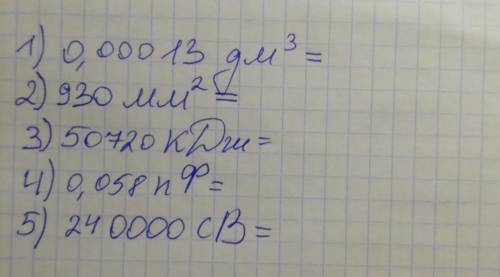 1) 0,00013 дм³ =
2) 930 мм² =
3) 50720 кДж =
4) 0,058 пФ =
5) 240000 сВ =